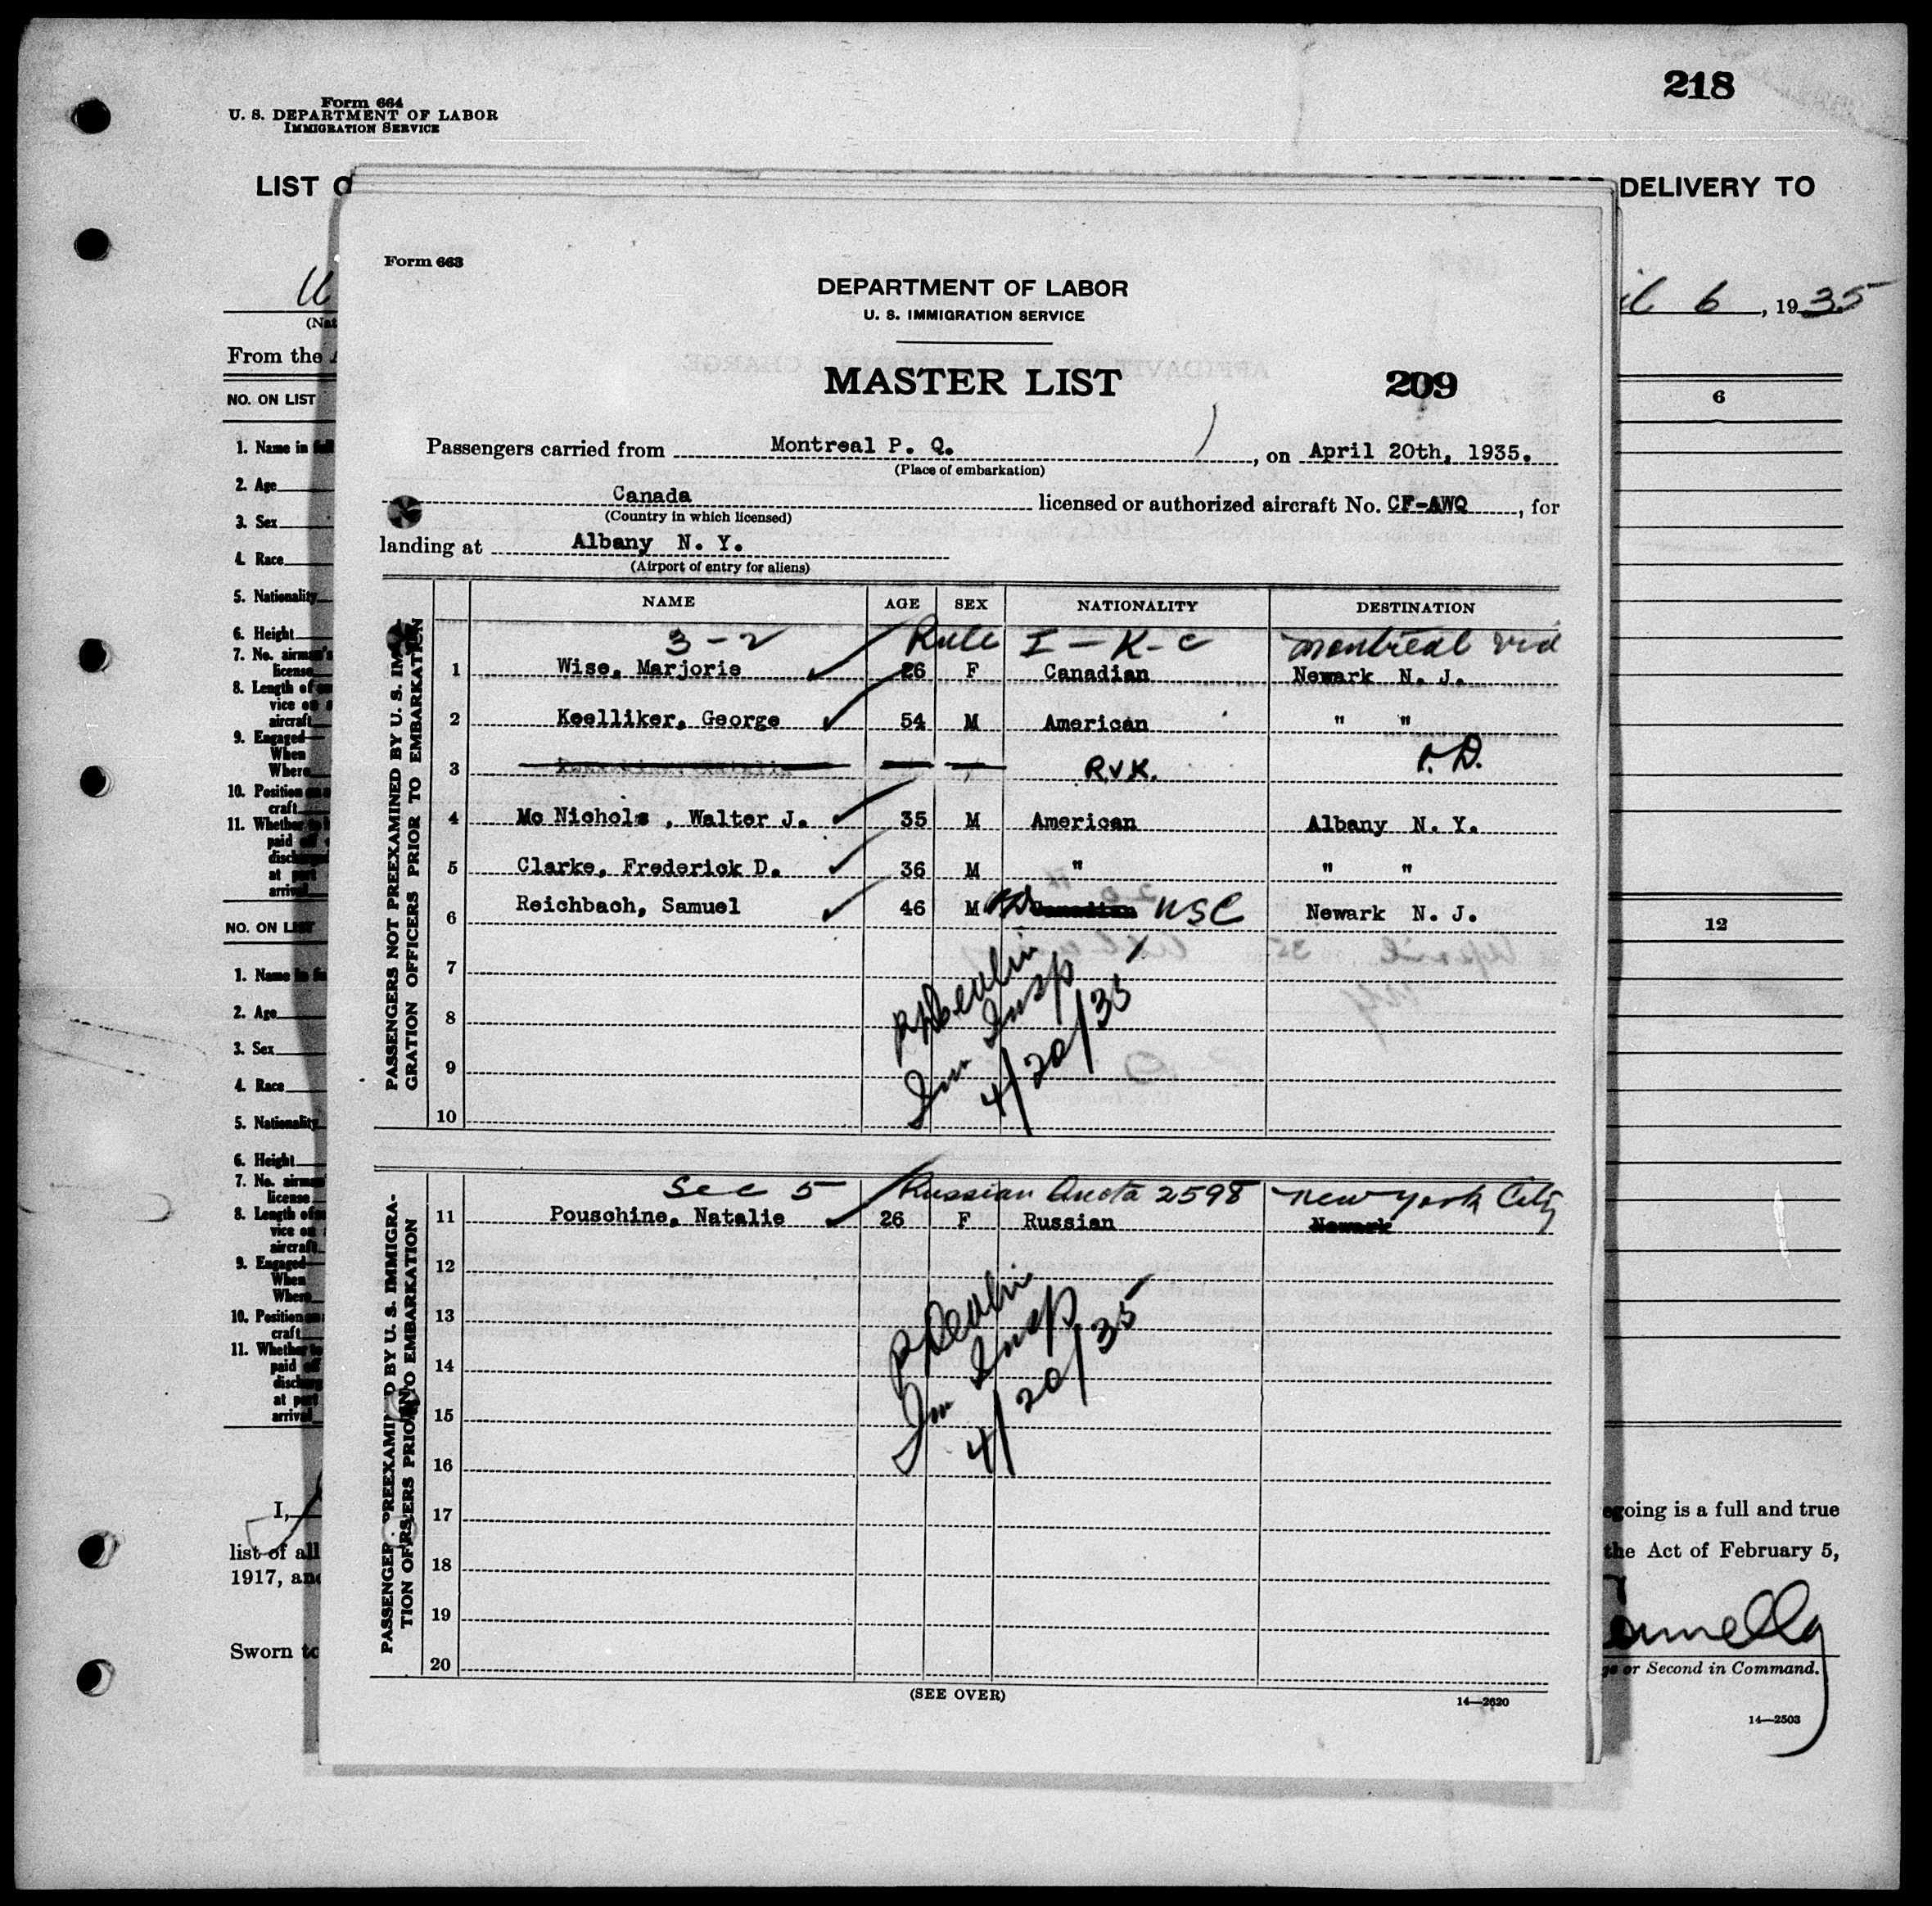 218
Form 664
U. S. DEPARTMENT OF LABOR
IMMIGRATION SERVICE
LIST
DELIVERY TO
6, 1935
(Nat
From the
NO. ON LIST
6
1. Name in full
2. Age
3. Sex
4. Race
5. Nationality
6. Height
7. No. airman's
license
8. Length of
vice on
aircraft
9. Engaged—
When
Where
10. Position on
craft
11. Whether to
paid off
disch
at port
arrival
NO. ON LIST
12
1. Name in
2. Age
3. Sex
4. Race
5. Nationality
6. Height
7. No. airman
license
8. Length of
vice on
aircraft
9. Engaged—
When
Where
10. Position on
craft
11. Whether to
paid off
disch
at port
arrival
I,
egoing is a full and true
list of all
the Act of February 5,
1917, and
Sworn to
or Second in Command.
14—2503
Form 663
DEPARTMENT OF LABOR
U. S. IMMIGRATION SERVICE
MASTER LIST
209
Passengers carried from Montreal P. Q., on April 20th, 1935.
(Place of embarkation)
Canada licensed or authorized aircraft No. CF-AWQ, for
(Country in which licensed)
landing at Albany N. Y.
(Airport of entry for aliens)
PASSENGERS NOT PREEXAMINED BY U. S. IMMI
GRATION OFFICERS PRIOR TO EMBARKATION
NAME AGE SEX NATIONALITY DESTINATION
3-2 Rule I-K-c Montreal via
1 Wise, Marjorie 26 F Canadian Newark N. J.
2 Koelliker, George 54 M American " "
3 R.V.K. D.
4 Mc Nichols , Walter J. 35 M American Albany N. Y.
5 Clarke, Frederick D. 36 M " " "
6 Reichbach, Samuel 46 M Canadian USC Newark N. J.
7
8
9
10
Imm Insp
4/20/35
PASSENGERS PREEXAMINED BY U. S. IMMIGRA-
TION OFFICERS PRIOR TO EMBARKATION
Sec 5 Russian Quota 2598 New York City
11 Pouschine, Natalie 26 F Russian Newark
12
13
14
15
16
17
18
19
20
Imm Insp
4/20/35
(SEE OVER)
14—2620